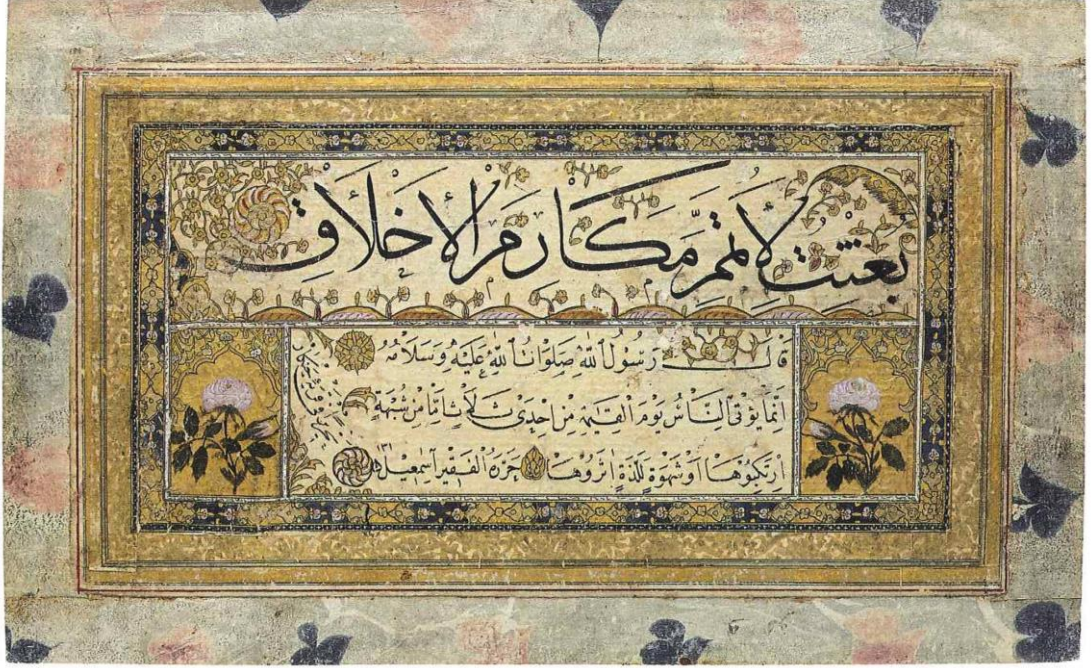 بعثت لأتمم مكارم الأخلاق
قال رسول الله صلوات الله عليه وسلامه
انما يؤتى الناس يوم القيمة من احدى ثلاث اما من شبهة
ارتكبوها او شهوة للذة اثروها حرره الفقير اسمعيل